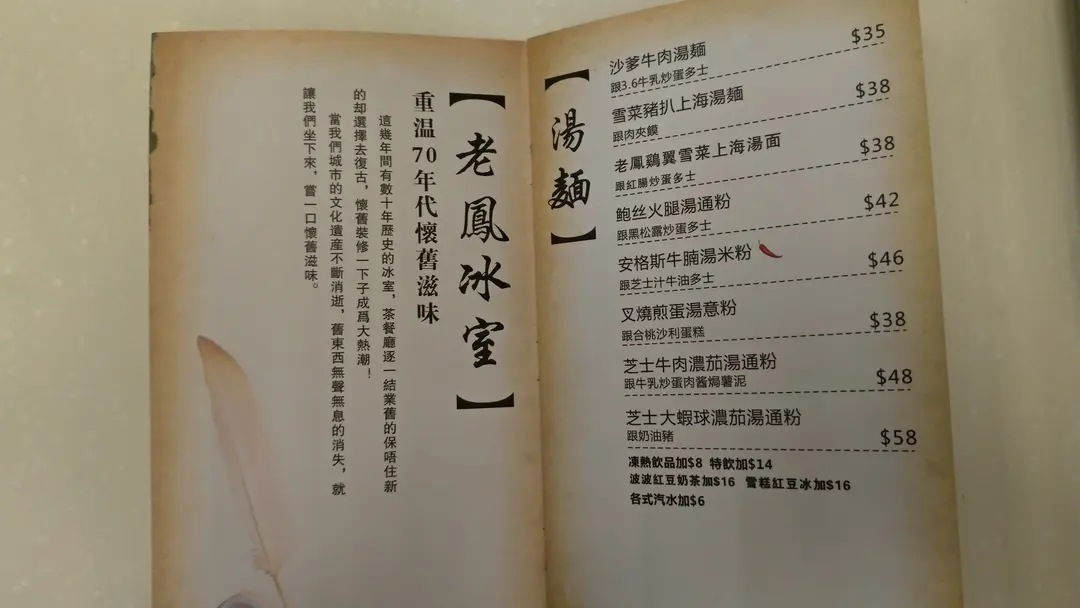 【老鳳冰室】
重温70年代懷舊滋味
這幾年間有數十年歷史的冰室，茶餐廳逐一結業舊的保唔住新
的却選擇去復古，懷舊裝修一下子成爲大熱潮！
當我們城市的文化遺産不斷消逝，舊東西無聲無息的消失，就
讓我們坐下來，嘗一口懷舊滋味。
【湯麵】
沙爹牛肉湯麺 $35
跟3.6牛乳炒蛋多士
雪菜豬扒上海湯麺 $38
跟肉夾饃
老鳳鷄翼雪菜上海湯面 $38
跟紅腸炒蛋多士
鲍丝火腿湯通粉 $42
跟黑松露炒蛋多士
安格斯牛腩湯米粉 $46
跟芝士汁牛油多士
叉燒煎蛋湯意粉 $38
跟合桃沙利蛋糕
芝士牛肉濃茄湯通粉 $48
跟牛乳炒蛋肉酱焗薯泥
芝士大蝦球濃茄湯通粉 $58
跟奶油豬
凍熱飲品加$8 特飲加$14
波波紅豆奶茶加$16 雪糕紅豆冰加$16
各式汽水加$6